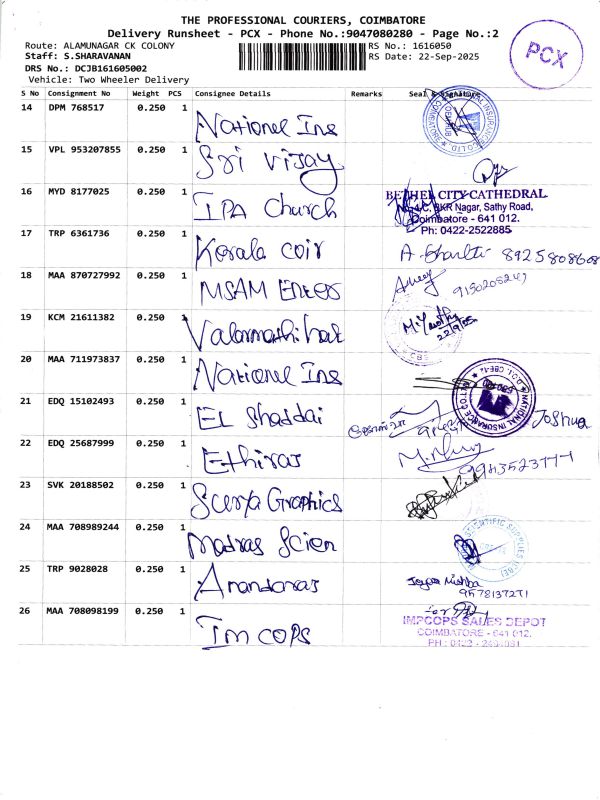 THE PROFESSIONAL COURIERS, COIMBATORE
Delivery Runsheet - PCX - Phone No.:9047080280 - Page No.:2
Route: ALAMUNAGAR CK COLONY
RS No.: 1616050
Staff: S.SHARAVANAN
RS Date: 22-Sep-2025
DRS No.: DCJB161605002
Vehicle: Two Wheeler Delivery
PCX
S No Consignment No Weight PCS Consignee Details Remarks Seal & Signature
14 DPM 768517 0.250 1 Nationel Ins
15 VPL 953207855 0.250 1 Sri Vijay
16 MYD 8177025 0.250 1 IPA Church
BETHEL CITY CATHEDRAL
SKR Nagar, Sathy Road,
Coimbatore - 641 012.
Ph: 0422-2522885
17 TRP 6361736 0.250 1 Kerala coir
8925808608
18 MAA 870727992 0.250 1 MSAM Enters
19 KCM 21611382 0.250
22/9/25
20 MAA 711973837 0.250 1 Nationel Ins
21 EDQ 15102493 0.250 1 EL Shaddai
Joshua
22 EDQ 25687999 0.250 1 Ethiras
23 SVK 20188502 0.250 1 Surya Graphics
24 MAA 708989244 0.250 1 Madras Scien
25 TRP 9028028 0.250 1
9578137271
26 MAA 708098199 0.250 1 Im COPS
for
IMPCOPS SALES DEPOT
COIMBATORE - 641 012.